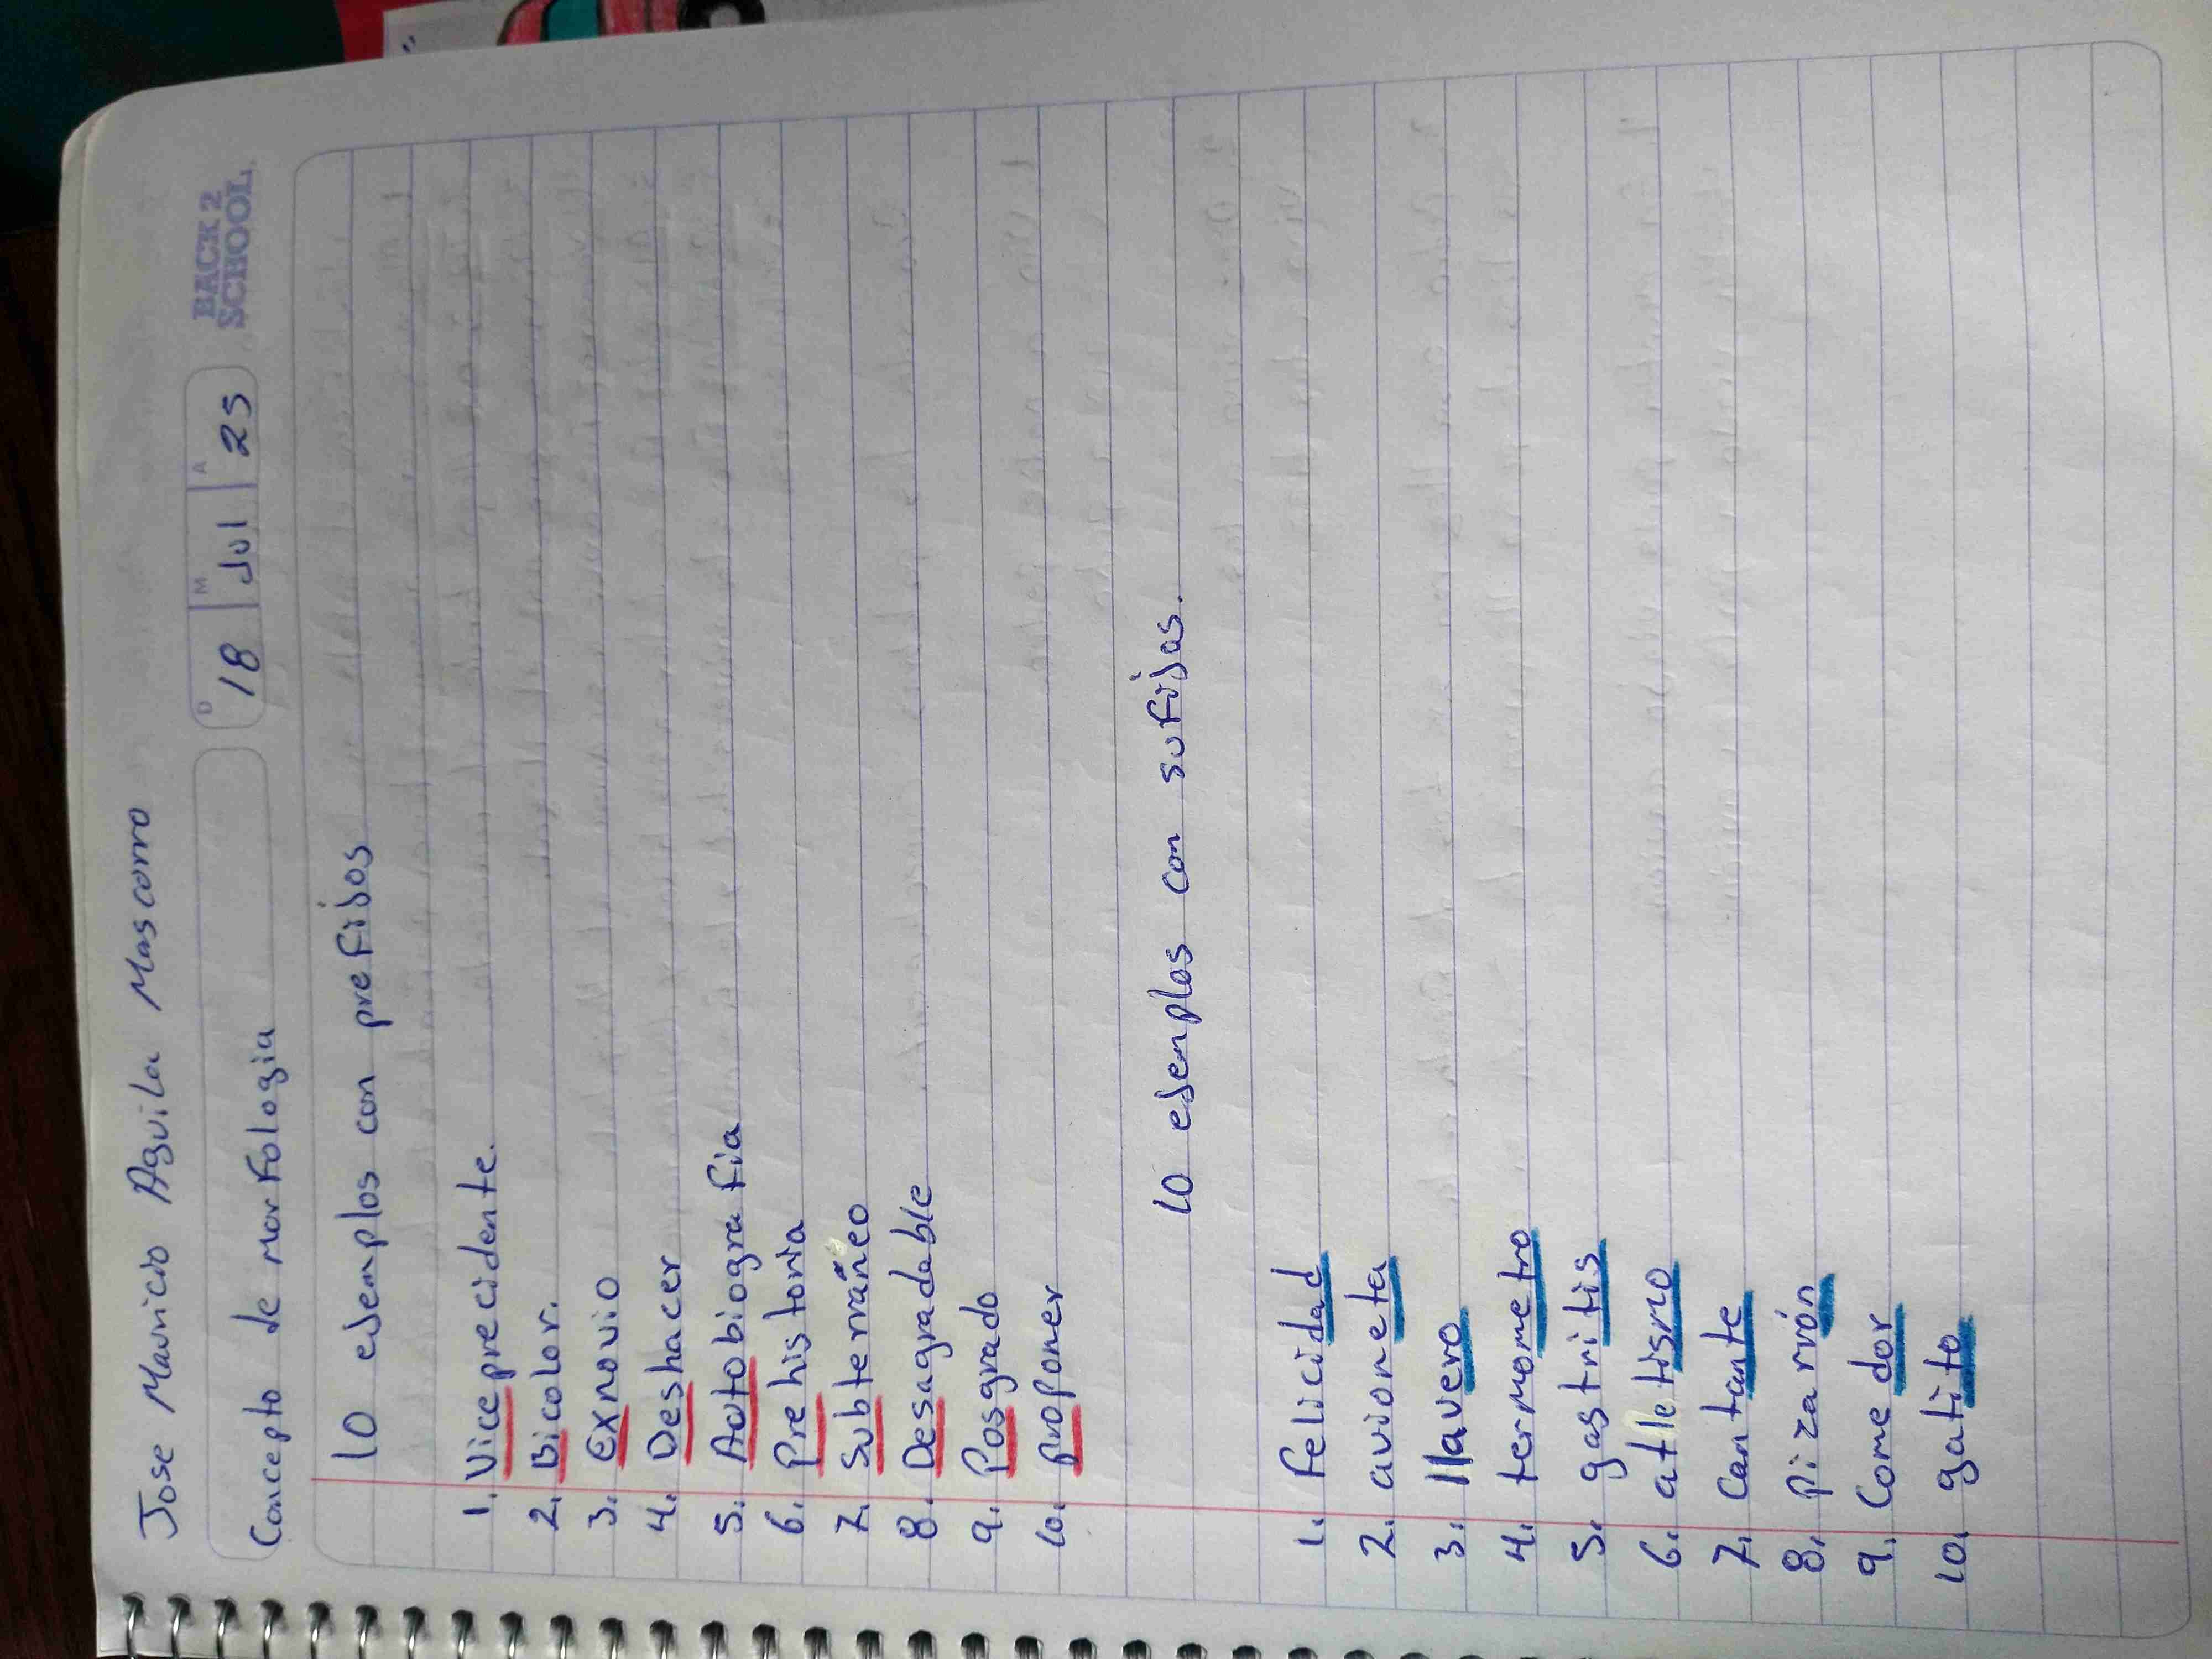 Jose Mauricio Aguilar Mascorro
D M A
18 Jul 25
BACK 2
SCHOOL
Concepto de morfologia
10 ejemplos con prefijos
1. Viceprecidente.
2. Bicolor.
3. Exnovio
4. Deshacer
5. Autobiografia
6. Prehistoria
7. Subterráneo
8. Desagradable
9. Posgrado
10. proponer
10 ejemplos con sufijos.
1. Felicidad
2. avioneta
3. llavero
4. termometro
5. gastritis
6. atletismo
7. cantante
8. pizarrón
9. Comedor
10. gatito